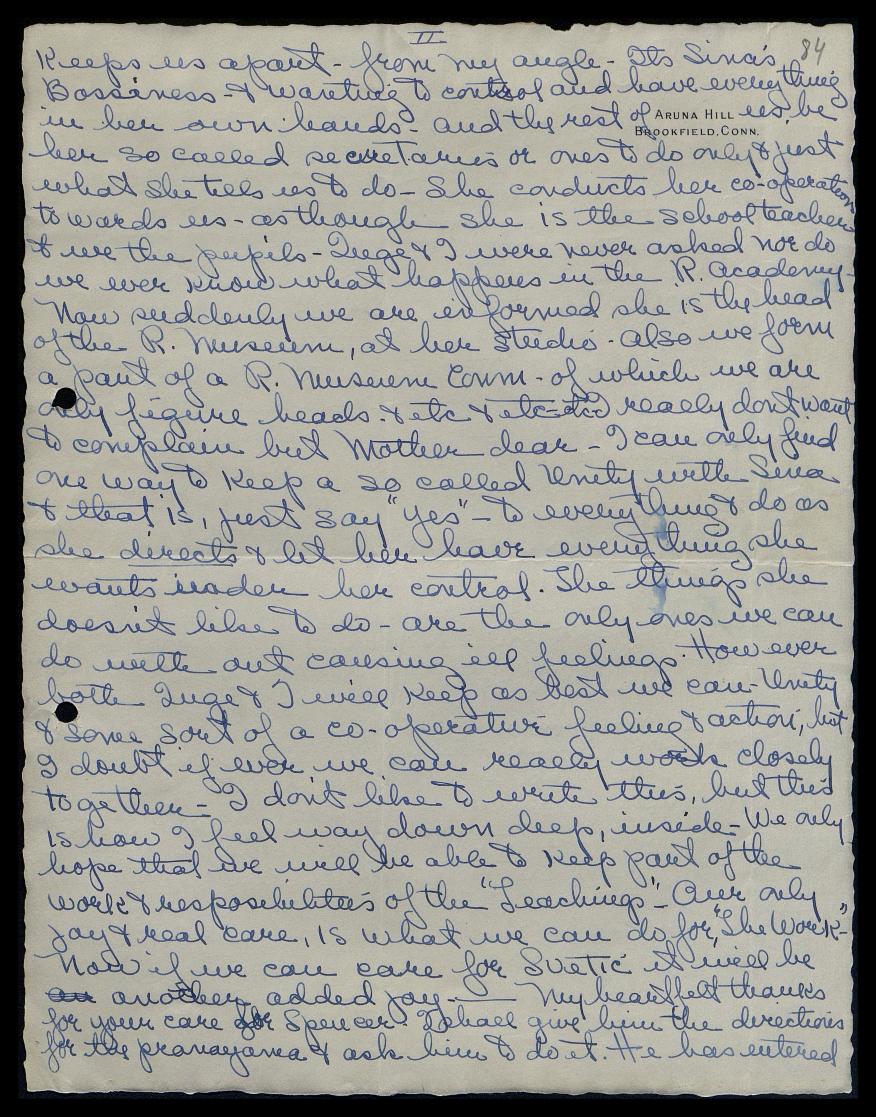 II
84
Keeps us apart - from my angle - Its Sina's
Bossiness - & wanting to control and have everything
in her own hands - and the rest of us, be
ARUNA HILL
BROOKFIELD, CONN.
her so called secretaries or ones to do only & just
what she tells us to do - She conducts her co-operation
towards us - as though she is the school teacher
& we the pupils - Inge & I were never asked nor do
we ever know what happens in the R. Academy -
Now suddenly we are informed she is the head
of the R. Museum, at her studio - also we form
a part of a R. Museum Comm - of which we are
only figure heads. & etc & etc - etc - I really dont want
to complain but Mother dear - I can only find
one way to Keep a so called Unity with Sina
& that is, just say "yes" - to everything & do as
she directs & let her have everything she
wants under her control. The things she
doesn't like to do - are the only ones we can
do with out causing ill feelings. However
both Inge & I will Keep as best we can - Unity
& some sort of a co-operative feeling & action, but
I doubt if ever we can really work closely
together - I dont like to write this, but this
is how I feel way down deep, inside - We only
hope that we will be able to Keep part of the
work & resposibilities of the "Teachings" - Our only
joy & real care, is what we can do for "The Work" -
Now if we can care for Svetic it will be
an another added joy. — My heartfelt thanks
for your care for Spencer - I shall give him the directions
for the pranayama & ask him to do it. He has entered